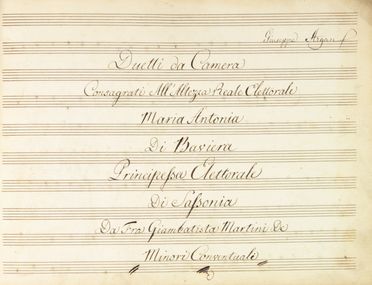 Giuseppe Sigari
Duetti da Camera
Consagrati All'Altezza Reale Elettorale
Maria Antonia
Di Baviera
Principessa Elettorale
Di Sassonia
Da Fra Giambatista Martini De
Minori Conventuale